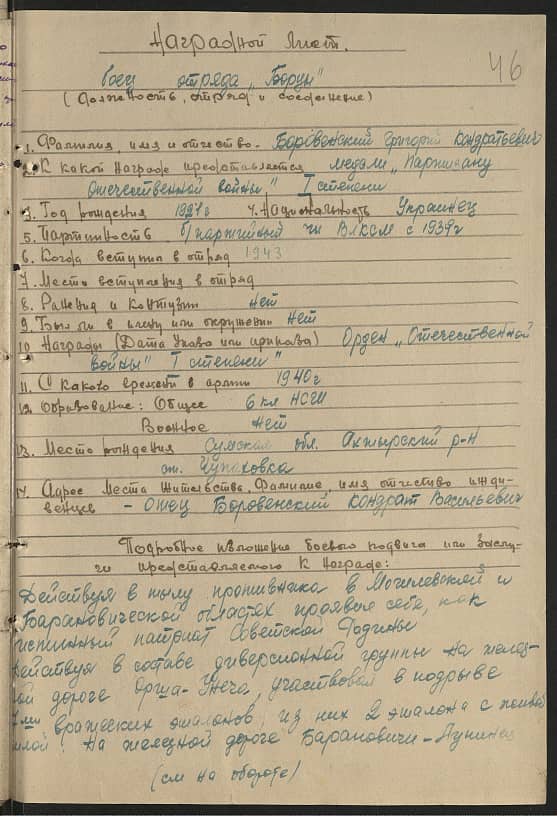 Наградной лист.
46
боец отряда „Борцы"
(Должность, отряд и соединение)
1. Фамилия, имя и отчество - Боровенский Григорий Кондратьевич
2. К какой награде представляется медали „Партизану
Отечественной войны" I степени
3. Год рождения 1921 г 4. Национальность Украинец
5. Партийность б/партийный чл ВЛКСМ с 1939 г
6. Когда вступил в отряд 1943
7. Место вступления в отряд
8. Ранения и контузии нет
9. Был ли в плену или окружении нет
10. Награды (Дата Указа или приказа) Орден „Отечественной
войны" I степени"
11. С какого времени в армии 1940 г
12. Образование: Общее 6 кл НСШ
Военное нет
13. Место рождения Сумская обл. Ахтырский р-н
Чупаховка
14. Адрес Места жительства, Фамилие, имя отчество ижди-
венцев - Отец Боровенский Кондрат Васильевич
Подробное изложение боевого подвига или Заслу-
ги представляемого к Награде:
Действуя в тылу противника в Могилевской и
Барановической областях проявил себя, как
истинный патриот Советской Родины
Действуя в составе диверсионной группы на желез-
ой дороге Орша-Унеча, участвовал в подрыве
вражеских эшалонов, из них 2 эшалона с живой
илой. На железной дороге Барановичи-Лунинец
(см на обороте)